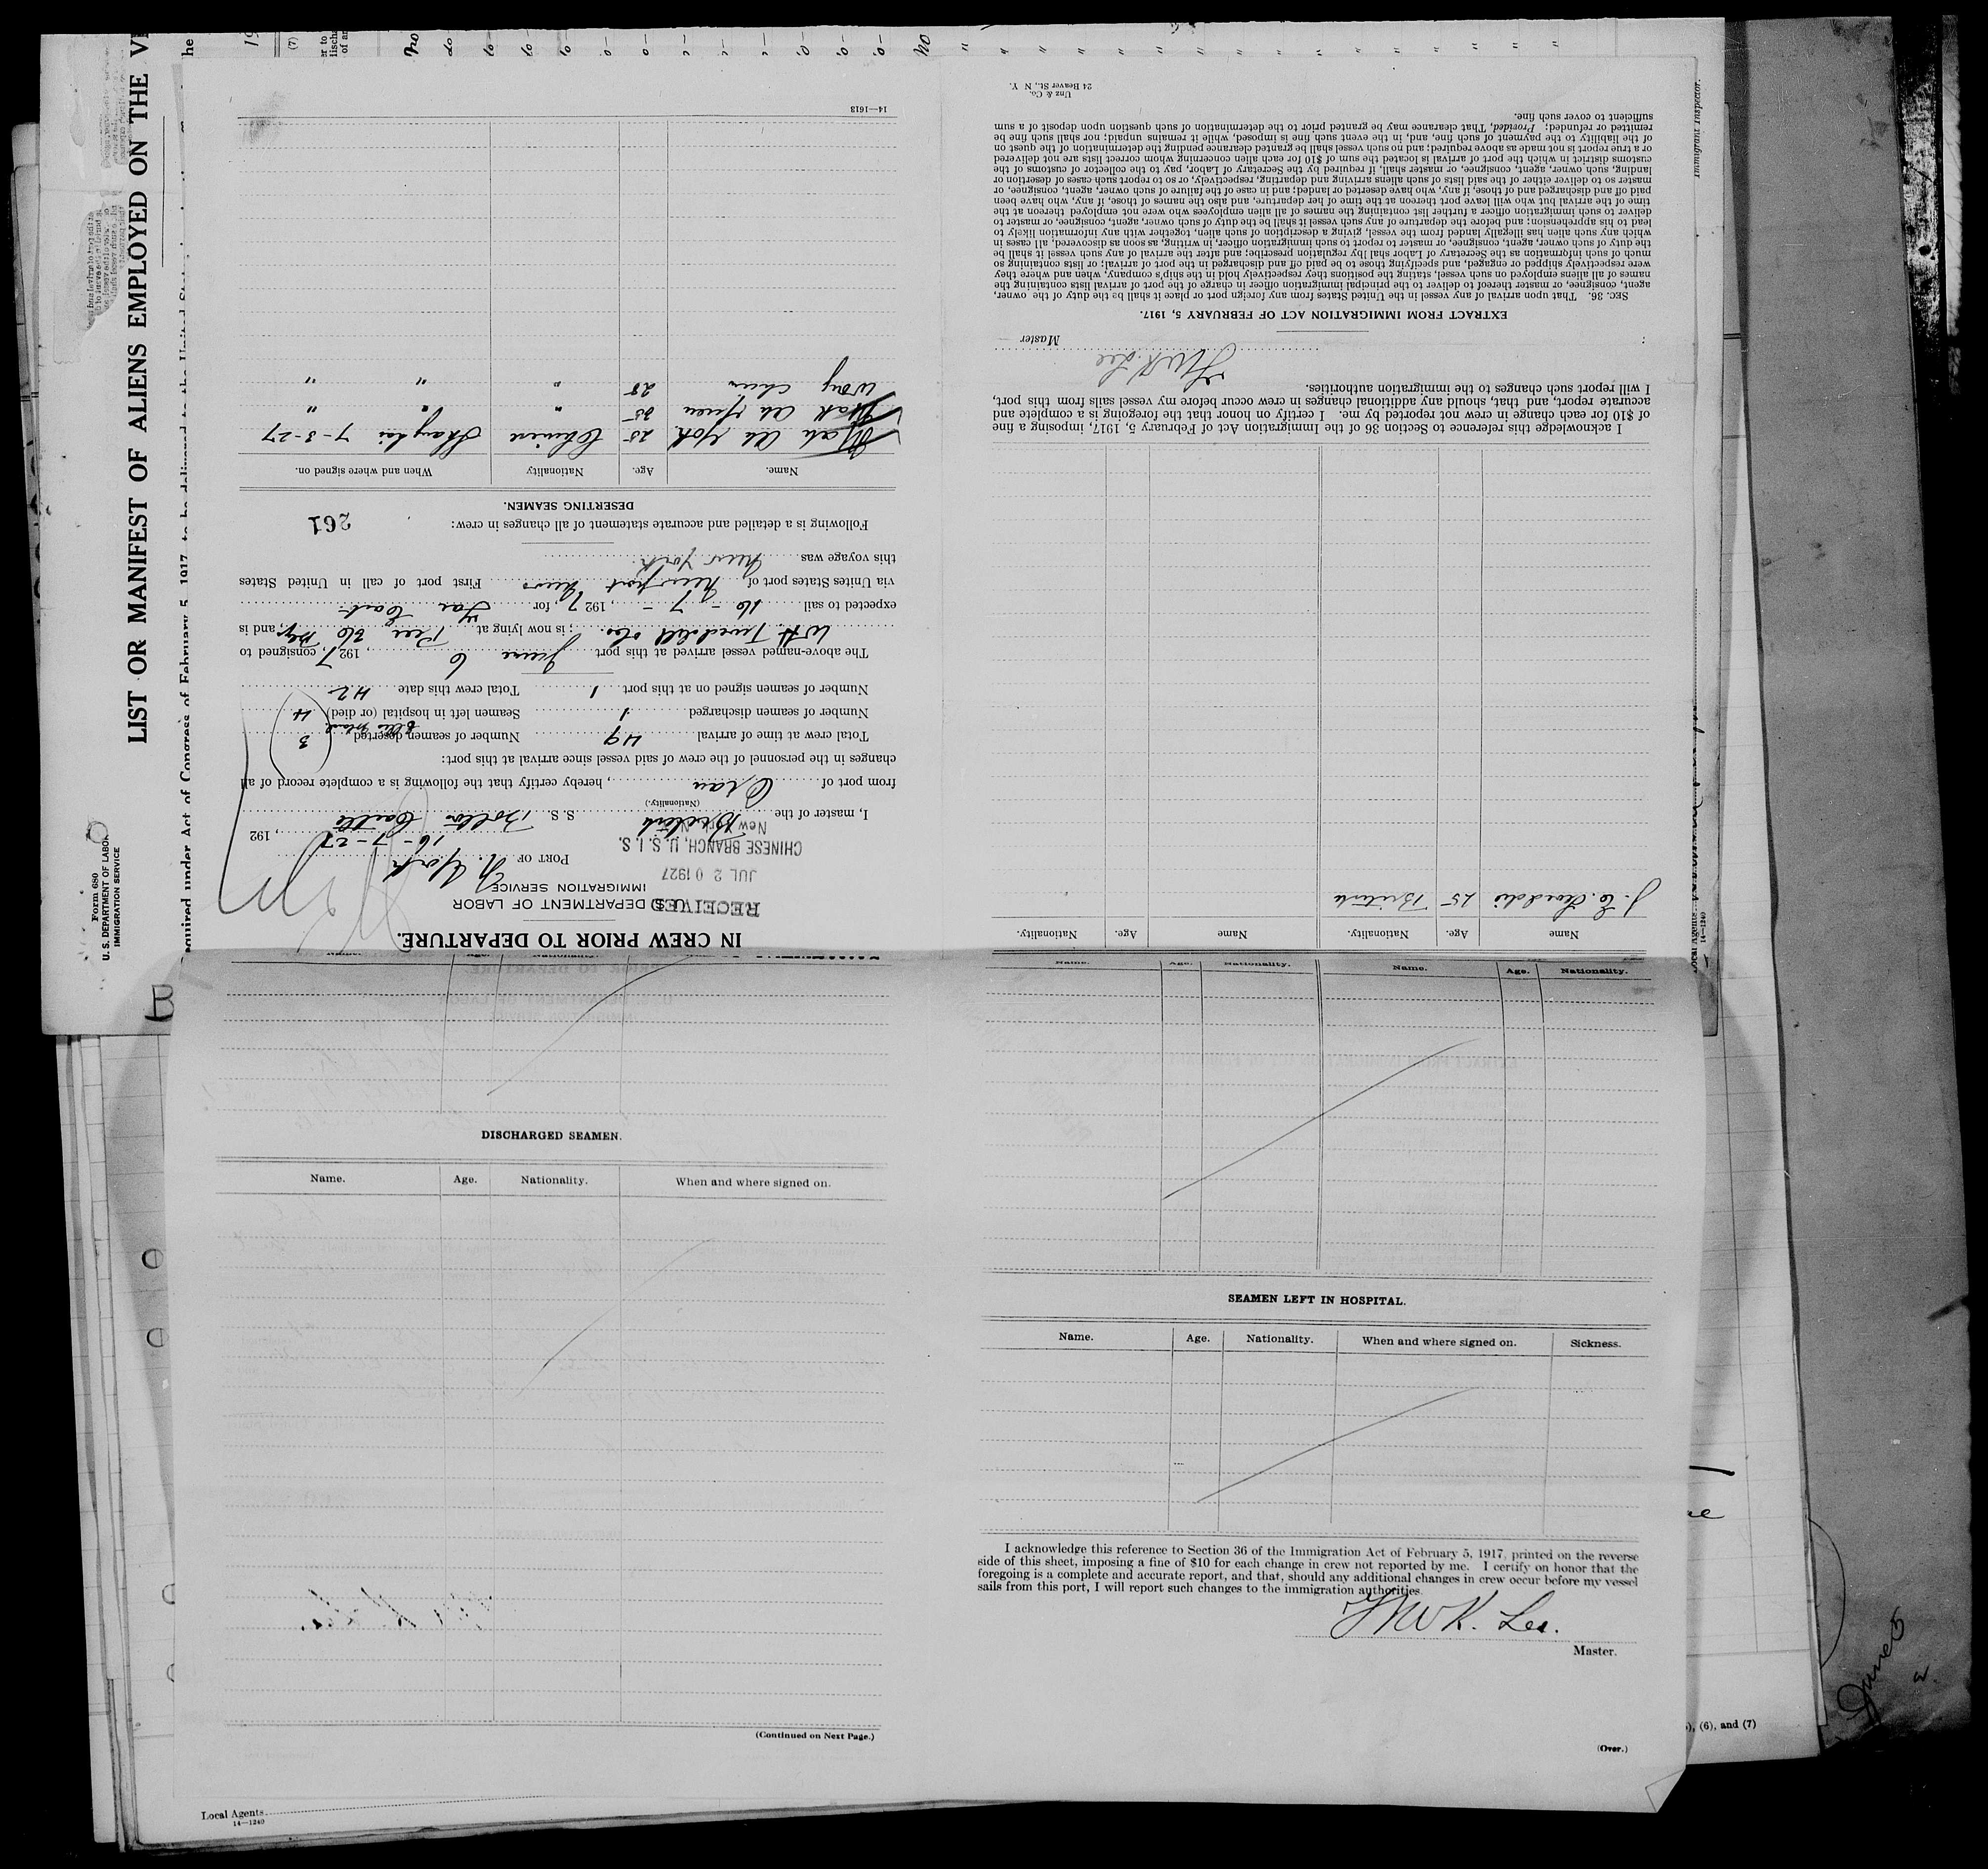 LIST OR MANIFEST OF ALIENS EMPLOYED ON THE
Form 680
U. S. DEPARTMENT OF LABOR
IMMIGRATION SERVICE
required under Act of Congress of February 5, 1917, to be delivered to the United
B
IN CREW PRIOR TO DEPARTURE.
U. S. DEPARTMENT OF LABOR
IMMIGRATION SERVICE
RECEIVED
JUL 20 1927
CHINESE BRANCH, U. S. I. S.
New York
PORT OF N. York
16-7-27, 192
I, master of the British S. S. Bolton Castle
(Nationality.)
from port of Oran, hereby certify that the following is a complete record of all
changes in the personnel of the crew of said vessel since arrival at this port:
Total crew at time of arrival 49 Number of seamen deserted 3
Ellis Island
Number of seamen discharged 1 Seamen left in hospital (or died) 4
Number of seamen signed on at this port 1 Total crew this date 42
The above-named vessel arrived at this port June 6, 1927, consigned to
is now lying at Pier 36, and is
expected to sail 16 - 7 -, 1927, for Far East
via Unites States port of Newport News First port of call in United States
this voyage was New York
Following is a detailed and accurate statement of all changes in crew:
261
DESERTING SEAMEN.
Name. Age. Nationality When and where signed on.
Mah Ah Yok 25 Chinese Shanghai 7-3-27
Mak Ah 35 " " "
Wong 28 " " "
14—1613
Name Age. Nationality. Name Age. Nationality.
25 British
I acknowledge this reference to Section 36 of the Immigration Act of February 5, 1917, imposing a fine
of $10 for each change in crew not reported by me. I certify on honor that the foregoing is a complete and
accurate report, and that, should any additional changes in crew occur before my vessel sails from this port,
I will report such changes to the immigration authorities.
K. Lee
Master
EXTRACT FROM IMMIGRATION ACT OF FEBRUARY 5, 1917.
SEC. 36. That upon arrival of any vessel in the United States from any foreign port or place it shall be the duty of the owner,
agent, consignee, or master thereof to deliver to the principal immigration officer in charge of the port of arrival lists containing the
names of all aliens employed on such vessel, stating the positions they respectively hold in the ship's company, when and where they
were respectively shipped or engaged, and specifying those to be paid off and discharged in the port of arrival; or lists containing so
much of such information as the Secretary of Labor shal lby regulation prescribe; and after the arrival of any such vessel it shall be
the duty of such owner, agent, consignee, or master to report to such immigration officer, in writing, as soon as discovered, all cases in
which any such alien has illegally landed from the vessel, giving a description of such alien, together with any information likely to
lead to his apprehension; and before the departure of any such vessel it shall be the duty of such owner, agent, consignee, or master to
deliver to such immigration officer a further list containing the names of all alien employees who were not employed thereon at the
time of the arrival but who will leave port thereon at the time of her departure, and also the names of those, if any, who have been
paid off and discharged and of those, if any, who have deserted or landed; and in case of the failure of such owner, agent, consignee, or
master so to deliver either of the said lists of such aliens arriving and departing, respectively, or so to report such cases of desertion or
landing, such owner, agent, consignee, or master shall, if required by the Secretary of Labor, pay to the collector of customs of the
customs district in which the port of arrival is located the sum of $10 for each alien concerning whom correct lists are not delivered
or a true report is not made as above required; and no such vessel shall be granted clearance pending the determination of the quest on
of the liability to the payment of such fine, and, in the event such fine is imposed, while it remains unpaid; nor shall such fine be
remitted or refunded: Provided, That clearance may be granted prior to the determination of such question upon deposit of a sum
sufficient to cover such fine.
Unz & Co.
24 Beaver St., N Y.
Immigrant Inspector.
DISCHARGED SEAMEN.
Name. Age. Nationality. When and where signed on.
(Continued on Next Page.)
Local Agents
14—1240
Name. Age. Nationality. Name. Age. Nationality.
SEAMEN LEFT IN HOSPITAL.
Name. Age. Nationality. When and where signed on. Sickness.
I acknowledge this reference to Section 36 of the Immigration Act of February 5, 1917, printed on the reverse
side of this sheet, imposing a fine of $10 for each change in crew not reported by me. I certify on honor that the
foregoing is a complete and accurate report, and that, should any additional changes in crew occur before my vessel
sails from this port, I will report such changes to the immigration authorities.
K. Lee.
Master.
(Over.)
(6), and (7)
June 5
Local Agents
14—1240